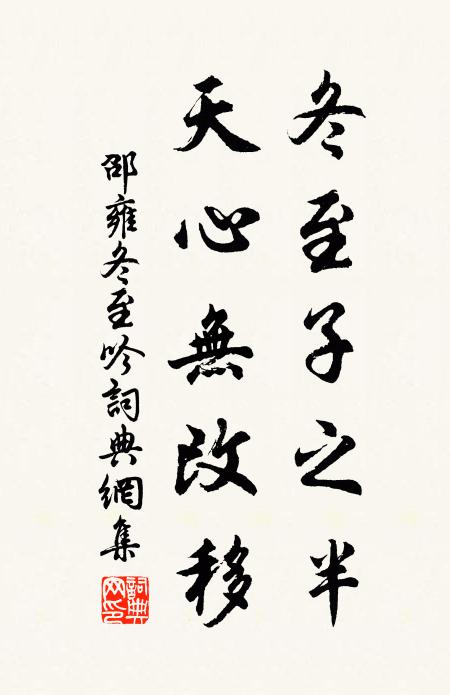 冬至子之半
天心無改移
邵雍冬至吟詞典網集
詞典网印